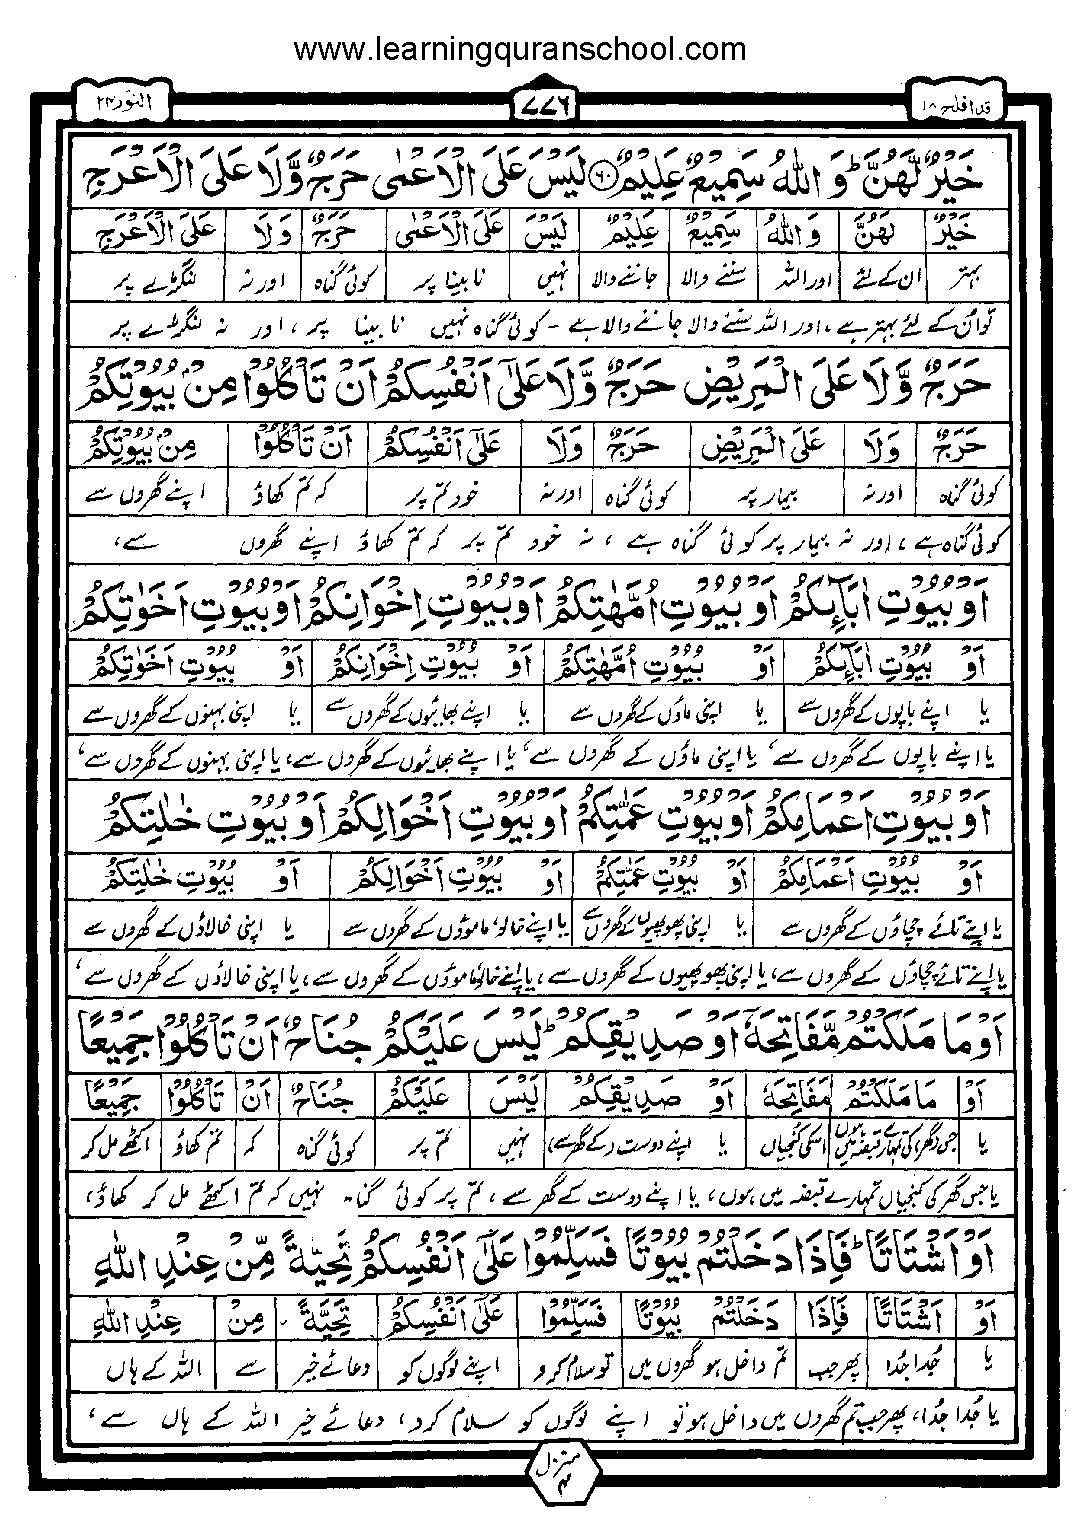 www.learningquranschool.com
النور ۲۴
۷۷۶
قد افلح ۱۸
خَيْرٌ لَّهُنَّ ؕ وَ اللّٰهُ سَمِيْعٌ عَلِيْمٌ ﴿۶۰﴾ لَيْسَ عَلَى الْاَعْمٰى حَرَجٌ وَّلَا عَلَى الْاَعْرَجِ
خَيْرٌ لَهُنَّ وَاللّٰهُ سَمِيْعٌ عَلِيْمٌ لَيْسَ عَلَى الْاَعْمٰى حَرَجٌ وَلَا عَلَى الْاَعْرَجِ
بہتر ان کے لئے اور اللہ سننے والا جاننے والا نہیں نابینا پر کوئی گناہ اور نہ لنگڑے پر
تو ان کے لئے بہتر ہے، اور اللہ سننے والا جاننے والا ہے - کوئی گناہ نہیں نابینا پر، اور نہ لنگڑے پر
حَرَجٌ وَّلَا عَلَى الْمَرِيْضِ حَرَجٌ وَّلَا عَلٰٓى اَنْفُسِكُمْ اَنْ تَاْكُلُوْا مِنْۢ بُيُوْتِكُمْ
حَرَجٌ وَلَا عَلَى الْمَرِيْضِ حَرَجٌ وَلَا عَلٰٓى اَنْفُسِكُمْ اَنْ تَاْكُلُوْا مِنْۢ بُيُوْتِكُمْ
کوئی گناہ اور نہ بیمار پر کوئی گناہ اور نہ خود تم پر کہ تم کھاؤ اپنے گھروں سے
کوئی گناہ ہے، اور نہ بیمار پر کوئی گناہ ہے، نہ خود تم پر کہ تم کھاؤ اپنے گھروں سے،
اَوْ بُيُوْتِ اٰبَآئِكُمْ اَوْ بُيُوْتِ اُمَّهٰتِكُمْ اَوْ بُيُوْتِ اِخْوَانِكُمْ اَوْ بُيُوْتِ اَخَوٰتِكُمْ
اَوْ بُيُوْتِ اٰبَآئِكُمْ اَوْ بُيُوْتِ اُمَّهٰتِكُمْ اَوْ بُيُوْتِ اِخْوَانِكُمْ اَوْ بُيُوْتِ اَخَوٰتِكُمْ
یا اپنے باپوں کے گھروں سے یا اپنی ماؤں کے گھروں سے یا اپنے بھائیوں کے گھروں سے یا اپنی بہنوں کے گھروں سے
یا اپنے باپوں کے گھروں سے، یا اپنی ماؤں کے گھروں سے، یا اپنے بھائیوں کے گھروں سے، یا اپنی بہنوں کے گھروں سے،
اَوْ بُيُوْتِ اَعْمَامِكُمْ اَوْ بُيُوْتِ عَمّٰتِكُمْ اَوْ بُيُوْتِ اَخْوَالِكُمْ اَوْ بُيُوْتِ خٰلٰتِكُمْ
اَوْ بُيُوْتِ اَعْمَامِكُمْ اَوْ بُيُوْتِ عَمّٰتِكُمْ اَوْ بُيُوْتِ اَخْوَالِكُمْ اَوْ بُيُوْتِ خٰلٰتِكُمْ
یا اپنے تائے چچاؤں کے گھروں سے یا اپنی پھوپھیوں کے گھروں سے یا اپنے خالو، ماموؤں کے گھروں سے یا اپنی خالاؤں کے گھروں سے
یا اپنے تائے چچاؤں کے گھروں سے، یا اپنی پھوپھیوں کے گھروں سے، یا اپنے خالو ماموؤں کے گھروں سے، یا اپنی خالاؤں کے گھروں سے،
اَوْ مَا مَلَكْتُمْ مَّفَاتِحَهٗٓ اَوْ صَدِيْقِكُمْ ؕ لَيْسَ عَلَيْكُمْ جُنَاحٌ اَنْ تَاْكُلُوْا جَمِيْعًا
اَوْ مَا مَلَكْتُمْ مَفَاتِحَهٗٓ اَوْ صَدِيْقِكُمْ لَيْسَ عَلَيْكُمْ جُنَاحٌ اَنْ تَاْكُلُوْا جَمِيْعًا
یا جس (گھر) کی تمہارے قبضہ میں ہوں اسکی کنجیاں یا اپنے دوست (کے گھر سے) نہیں تم پر کوئی گناہ کہ تم کھاؤ اکٹھے مل کر
یا جس گھر کی کنجیاں تمہارے قبضہ میں ہوں، یا اپنے دوست کے گھر سے، تم پر کوئی گناہ نہیں کہ تم اکٹھے مل کر کھاؤ،
اَوْ اَشْتَاتًا ؕ فَاِذَا دَخَلْتُمْ بُيُوْتًا فَسَلِّمُوْا عَلٰٓى اَنْفُسِكُمْ تَحِيَّةً مِّنْ عِنْدِ اللّٰهِ
اَوْ اَشْتَاتًا فَاِذَا دَخَلْتُمْ بُيُوْتًا فَسَلِّمُوْا عَلٰٓى اَنْفُسِكُمْ تَحِيَّةً مِنْ عِنْدِ اللّٰهِ
یا جُدا جُدا پھر جب تم داخل ہو گھروں میں تو سلام کرو اپنے لوگوں کو دعائے خیر سے اللہ کے ہاں
یا جُدا جُدا، پھر جب تم گھروں میں داخل ہو تو اپنے لوگوں کو سلام کرو، دعائے خیر اللہ کے ہاں سے،
منزل ۴